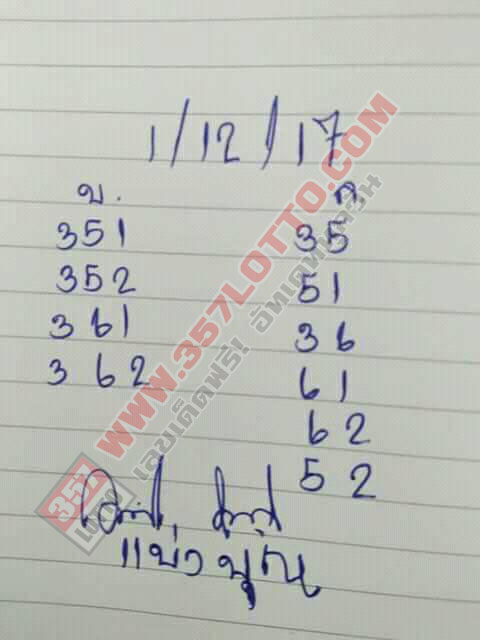 1/12/17
บ. ล.
351 35
352 51
361 36
362 61
62
52
แบ่งบุญ
WWW.357LOTTO.COM
เลขเด็ดฟรี! อัพเดททุกวัน
357
LOTTO